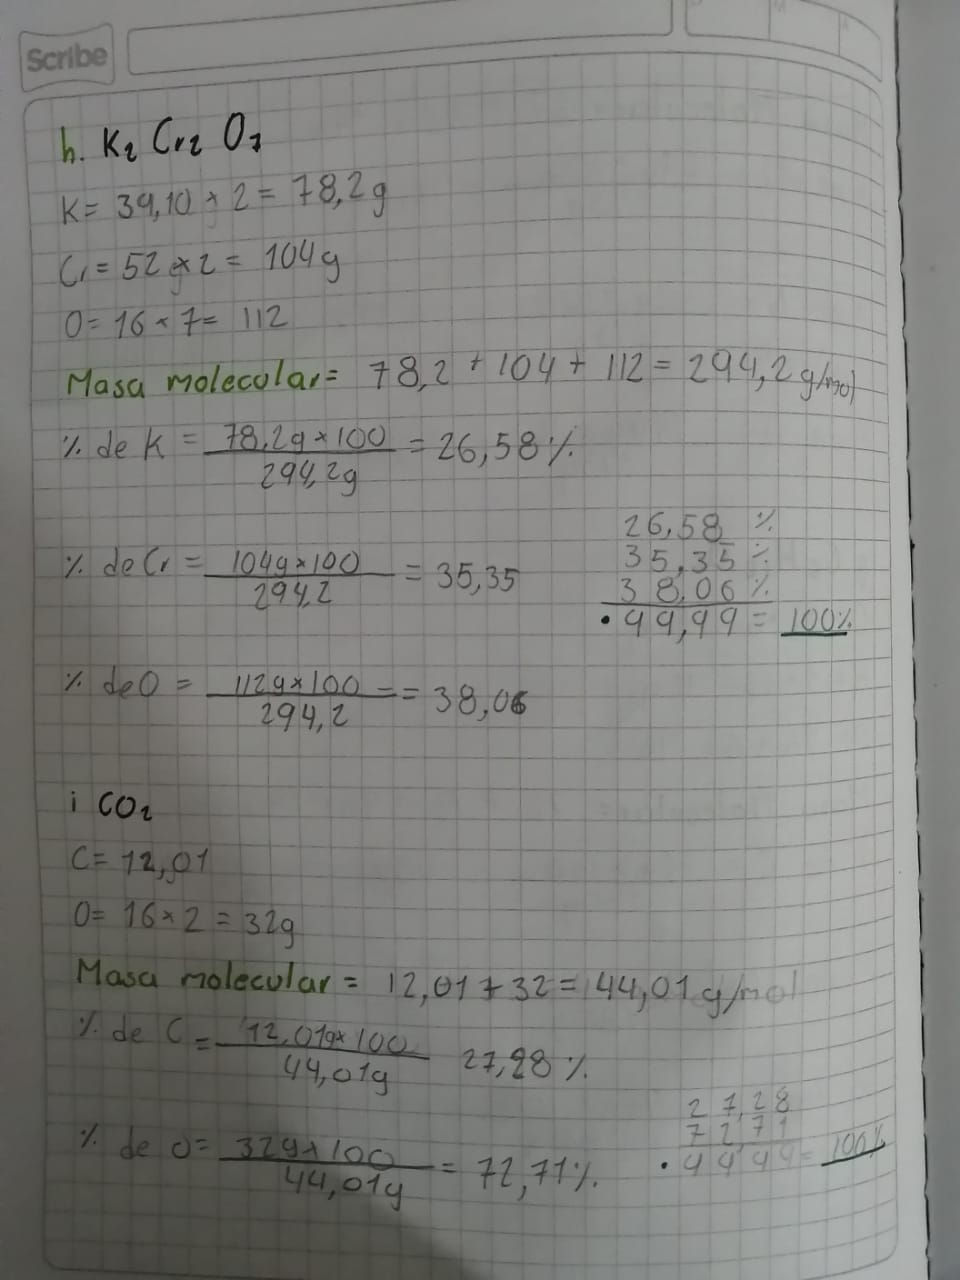 Scribe
h. K2 Cr2 O7
K= 39,10 × 2 = 78,2g
Cr = 52 g × 2 = 104g
O= 16 × 7= 112
Masa molecular= 78,2 + 104 + 112 = 294,2 g/mol
% de K = 78,2g×100 / 294,2g = 26,58%
26,58 %
% de Cr = 104g×100 / 294,2 = 35,35
35,35 %
38,06 %
• 99,99 = 100%
% de O = 112g×100 / 294,2 = = 38,06
i CO2
C= 12,01
O= 16 × 2 = 32g
Masa molecular = 12,01 + 32 = 44,01 g/mol
% de C = 12,01g× 100 / 44,01g 27,28 %.
27,28
72 71
% de O= 32g×100 / 44,01g = 72,71%.
• 99 99 = 100%